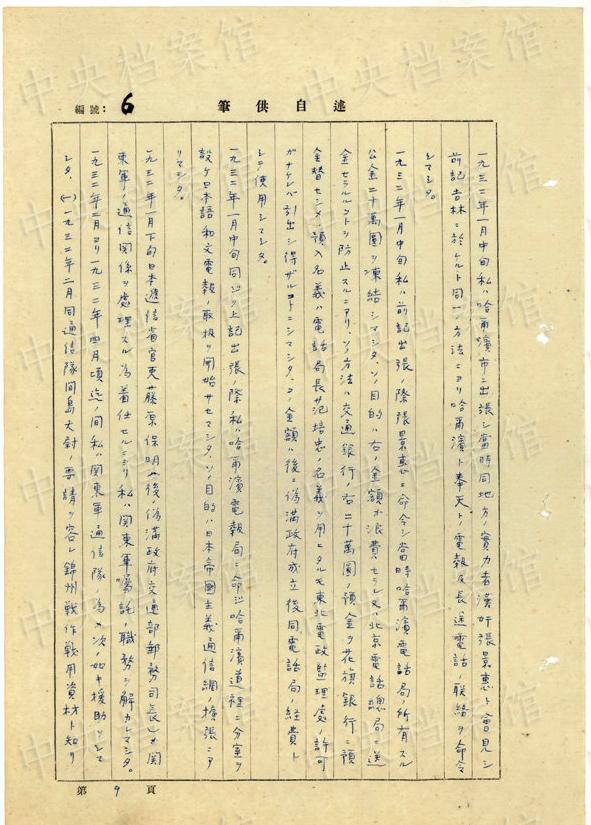 述自供筆
編號：6
一九三二年一月中旬私ハ哈爾濱市ニ出張シ當時同地方ノ實力者漢奸張景惠ト會見シ
前記吉林ニ於ケルト同一ノ方法ニヨリ哈爾濱ト奉天トノ電報及長途電話ノ聯絡ヲ命令
シマシタ。
一九三二年一月中旬私ハ前記出張ノ際張景惠ニ命令シ當時哈爾濱電話局ノ所有スル
公金二十萬圓ヲ凍結シマシタ、ソノ目的ハ右ノ金額ガ浪費セラレ又ハ北京電話總局ニ送
金セラルルコトヲ防止スルニアリ、ソノ方法ハ交通銀行ノ右二十萬圓ノ預金ヲ花旗銀行ニ預
金替セシメ預入名義ハ電話局長范培忠ノ名義ヲ用ヒタルモ東北電政監理處ノ許可
ガナケレバ引出シ得ザルコトニシマシタ、コノ金額ハ後ニ偽滿政府成立後同電話局ノ經費ト
シテ使用シマシタ。
一九三二年一月中旬同ジク上記出張ノ際私ハ哈爾濱電報局ニ命ジ哈爾濱道裡ニ分室ヲ
設ケ日本語和文電報ノ取扱ヲ開始サセマシタ、ソノ目的ハ日本帝國主義通信網擴張ニア
リマシタ。
一九三二年一月下旬日本遞信省官吏藤原保明（後偽滿政府交通部郵務司長）ガ關
東軍ノ通信関係ヲ處理スル為着任セルニヨリ私ハ関東軍囑託ノ職務ヲ解カレマシタ。
一九三二年二月ヨリ一九三二年四月頃迄ノ間私ハ関東軍通信隊ノ為メ次ノ如キ援助ヲシマ
シタ、(一)一九三二年二月同通信隊間島大尉ノ要請ヲ容レ錦州戰作戰用資材ト知リ
第 9 頁
中央档案馆